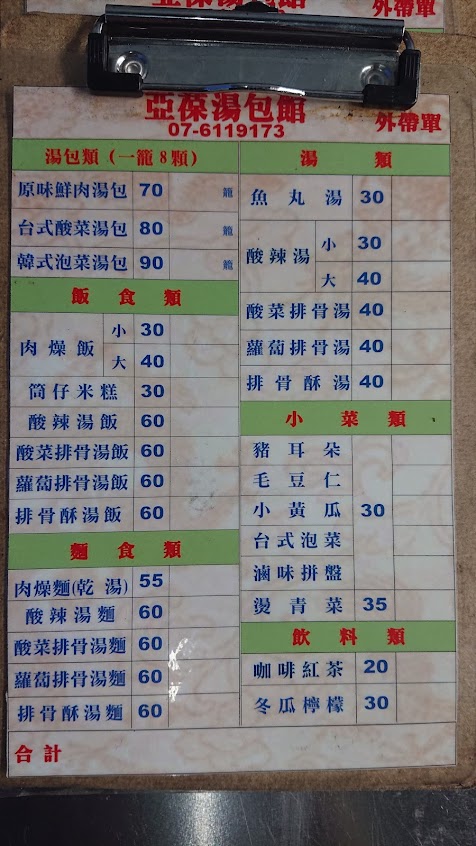 亞葆湯包館
07-6119173
外帶單
湯包類(一籠8顆)
原味鮮肉湯包 70 籠
台式酸菜湯包 80 籠
韓式泡菜湯包 90 籠
飯食類
肉燥飯 小 30
大 40
筒仔米糕 30
酸辣湯飯 60
酸菜排骨湯飯 60
蘿蔔排骨湯飯 60
排骨酥湯飯 60
麵食類
肉燥麵(乾 湯) 55
酸辣湯麵 60
酸菜排骨湯麵 60
蘿蔔排骨湯麵 60
排骨酥湯麵 60
湯類
魚丸湯 30
酸辣湯 小 30
大 40
酸菜排骨湯 40
蘿蔔排骨湯 40
排骨酥湯 40
小菜類
豬耳朵
毛豆仁
小黃瓜 30
台式泡菜
滷味拼盤
燙青菜 35
飲料類
咖啡紅茶 20
冬瓜檸檬 30
合計